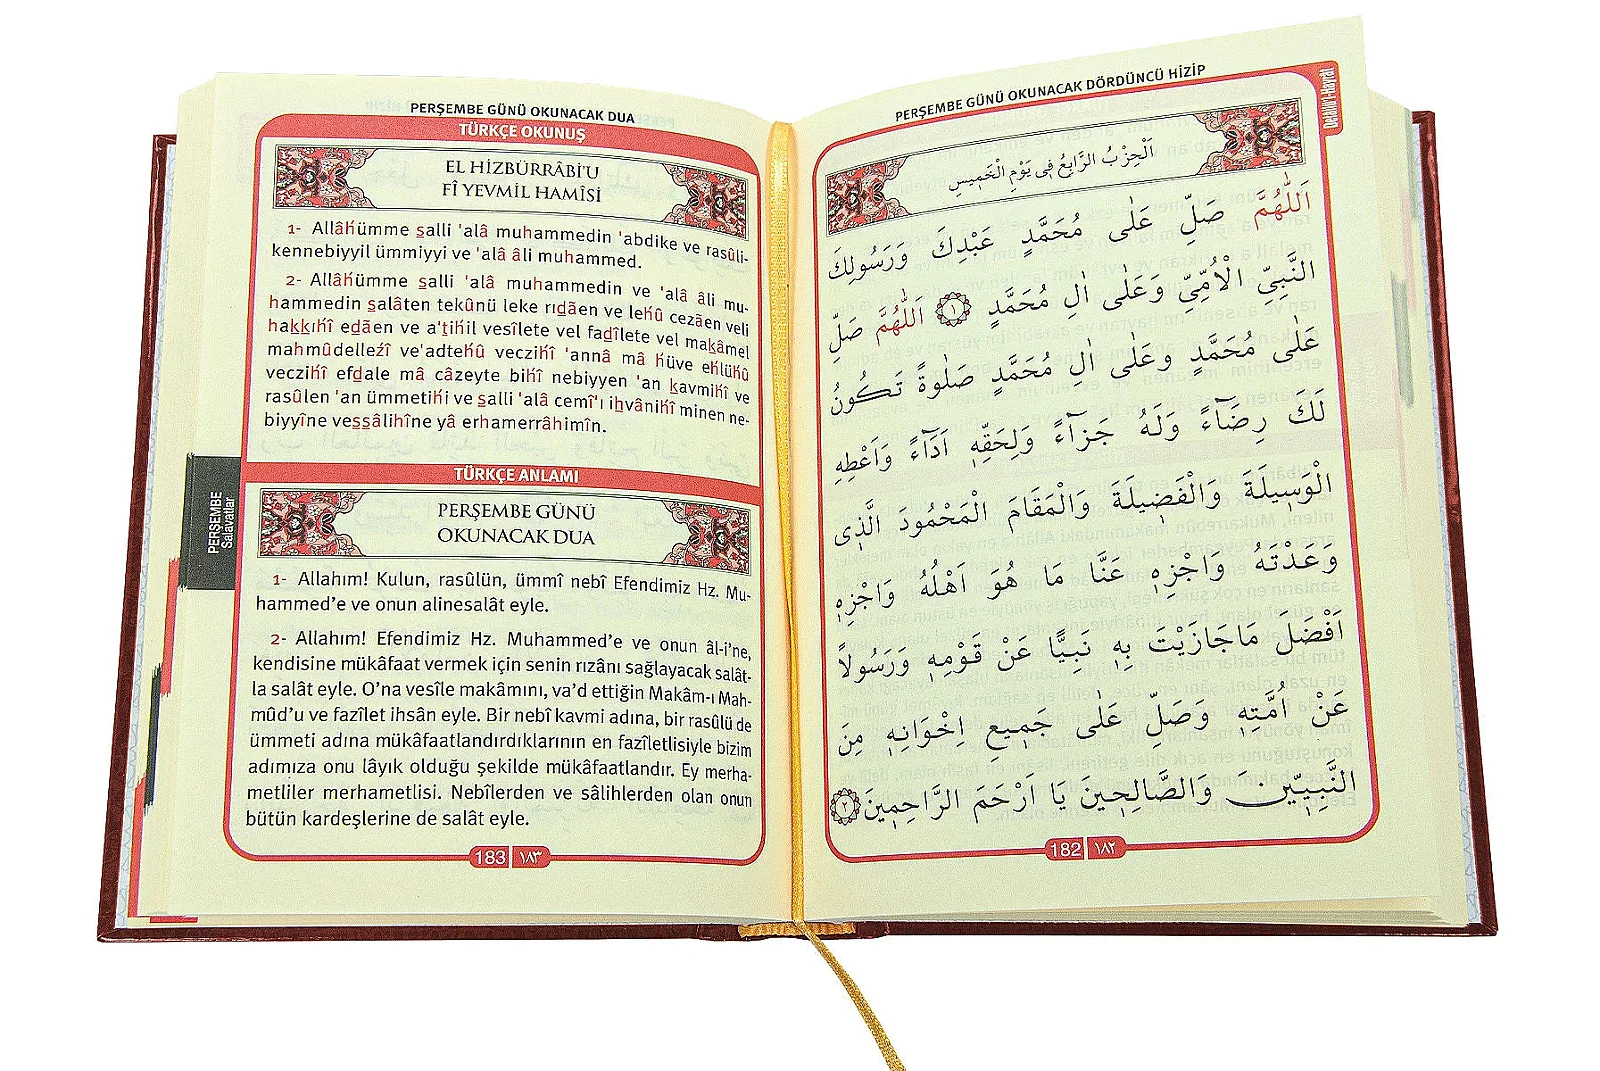 PERŞEMBE GÜNÜ OKUNACAK DUA
TÜRKÇE OKUNUŞ
EL HİZBÜRRÂBİ'U
FÎ YEVMİL HAMÎSİ
1- Allâhümme salli 'alâ muhammedin 'abdike ve rasûli-
kennebiyyil ümmiyyi ve 'alâ âli muhammed.
2- Allâhümme salli 'alâ muhammedin ve 'alâ âli mu-
hammedin salâten tekûnü leke rıdãen ve lehû cezãen veli
hakkıhî edãen ve a'tıhil vesîlete vel fadîlete vel makâmel
mahmûdellezî ve'adtehû veczihî 'annâ mâ hüve ehlühû
veczihî efdale mâ câzeyte bihî nebiyyen 'an kavmihî ve
rasûlen 'an ümmetihî ve salli 'alâ cemî'ı ihvânihî minen ne-
biyyîne vessâlihîne yâ erhamerrâhimîn.
TÜRKÇE ANLAMI
PERŞEMBE GÜNÜ
OKUNACAK DUA
1- Allahım! Kulun, rasûlün, ümmî nebî Efendimiz Hz. Mu-
hammed'e ve onun alinesalât eyle.
2- Allahım! Efendimiz Hz. Muhammed'e ve onun âl-i'ne,
kendisine mükâfaat vermek için senin rızânı sağlayacak salât-
la salât eyle. O'na vesîle makâmını, va'd ettiğin Makâm-ı Mah-
mûd'u ve fazîlet ihsân eyle. Bir nebî kavmi adına, bir rasûlü de
ümmeti adına mükâfaatlandırdıklarının en fazîletlisiyle bizim
adımıza onu lâyık olduğu şekilde mükâfaatlandır. Ey merha-
metliler merhametlisi. Nebîlerden ve sâlihlerden olan onun
bütün kardeşlerine de salât eyle.
183 ١٨٣
PERŞEMBE
Salavatlar
PERŞEMBE GÜNÜ OKUNACAK DÖRDÜNCÜ HİZİP
Delâil'i-Hayrât
اَلْحِزْبُ الرَّابِعُ فِى يَوْمِ الْخَمِيسِ
اَللّٰهُمَّ صَلِّ عَلٰى مُحَمَّدٍ عَبْدِكَ وَرَسُولِكَ
النَّبِيِّ الْاُمِّيِّ وَعَلٰى اٰلِ مُحَمَّدٍ ﴿١﴾ اَللّٰهُمَّ صَلِّ
عَلٰى مُحَمَّدٍ وعَلٰى اٰلِ مُحَمَّدٍ صَلٰوةً تَكُونُ
لَكَ رِضَاءً وَلَهُ جَزَاءً وَلِحَقِّهِ اَدَاءً وَاَعْطِهِ
الْوَسِيلَةَ وَالْفَضِيلَةَ وَالْمَقَامَ الْمَحْمُودَ الَّذِى
وَعَدْتَهُ وَاجْزِهِ عَنَّا مَا هُوَ اَهْلُهُ وَاجْزِهِ
اَفْضَلَ مَاجَازَيْتَ بِهِ نَبِيًّا عَنْ قَوْمِهِ وَرَسُولاً
عَنْ اُمَّتِهِ وَصَلِّ عَلٰى جَمِيعِ اِخْوَانِهِ مِنَ
النَّبِيّينَ وَالصَّالِحِينَ يَا اَرْحَمَ الرَّاحِمِينَ ﴿٢﴾
182 ١٨٢